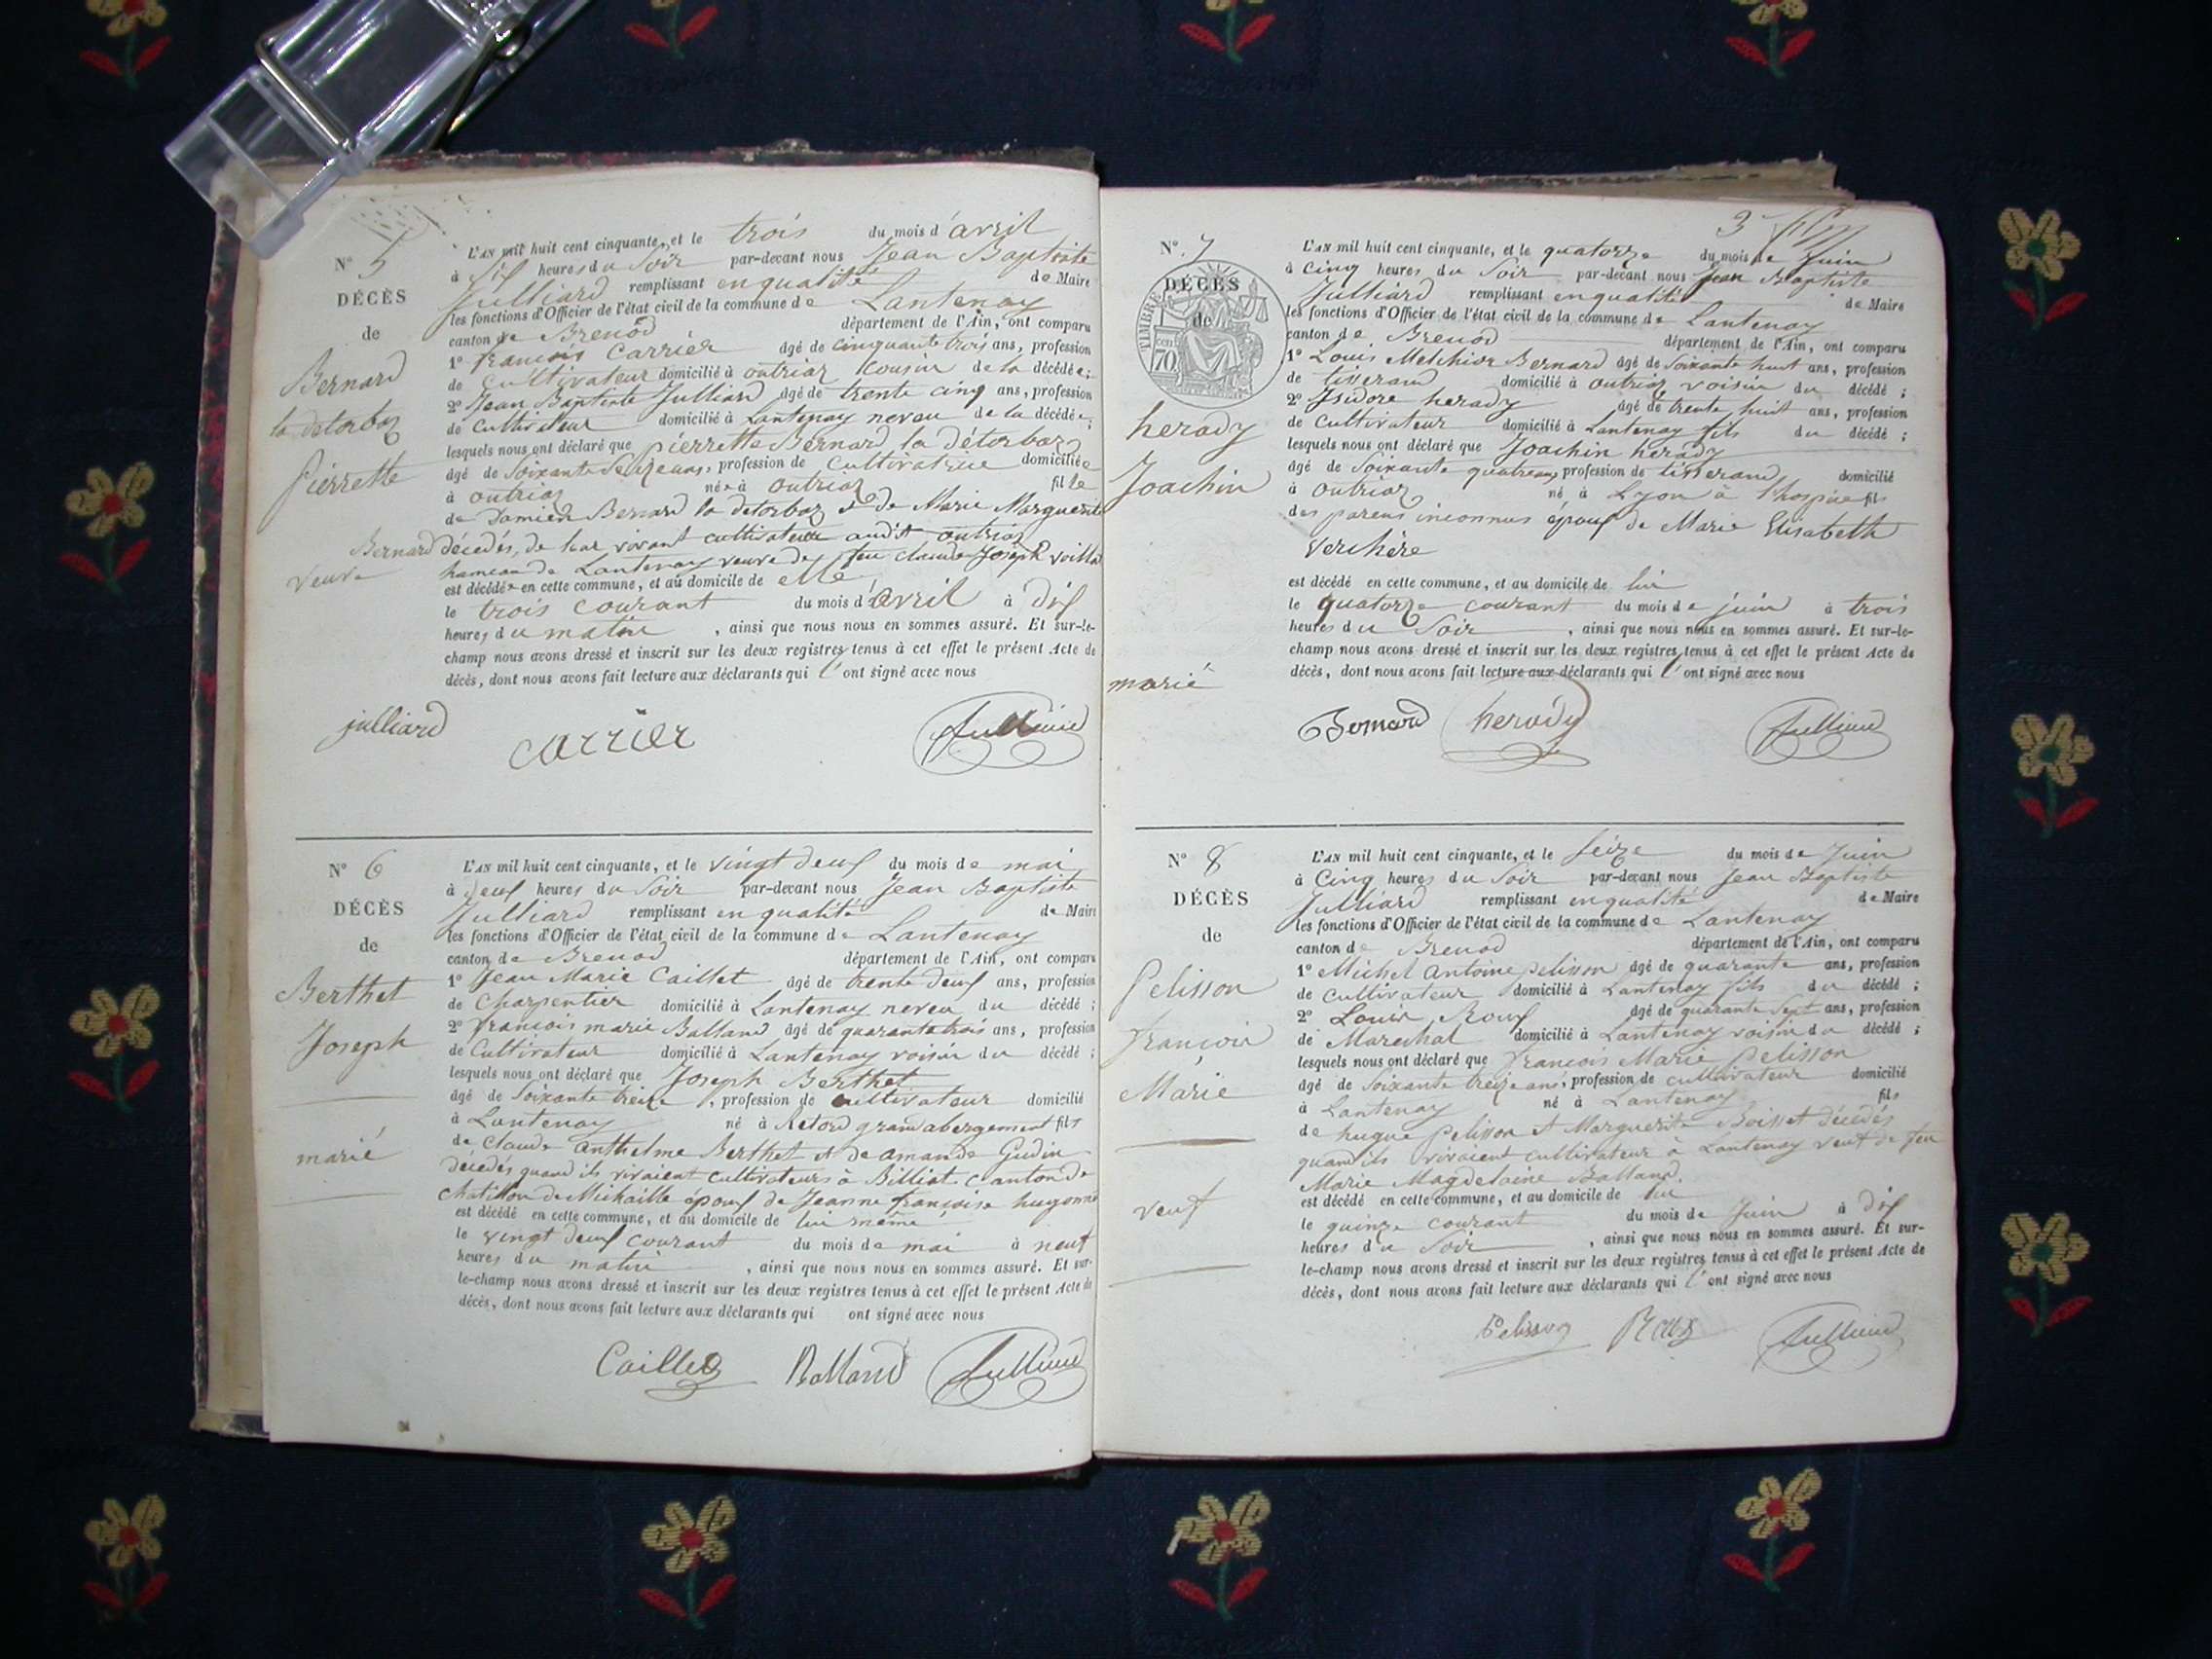 N° 5
DÉCÈS
de
Bernard
la detorbaz
Pierrette
veuve
L'AN mil huit cent cinquante, et le trois du mois d'avril
à Six heures du Soir par-devant nous Jean Baptiste
Julliard remplissant en qualité de Maire
les fonctions d'Officier de l'état civil de la commune de Lantenay
canton de Brenod département de l'Ain, ont comparu
1° francois Carrier âgé de cinquante trois ans, profession
de Cultivateur domicilié à outriaz cousin de la décédée;
2° Jean Baptiste Julliard âgé de trente cinq ans, profession
de Cultivateur domicilié à Lantenay neveu de la décédée;
lesquels nous ont déclaré que pierrette Bernard la détorbaz
âgé de Soixante Seize ans, profession de Cultivatrice domiciliée
à outriaz née à outriaz fille
de Damien Bernard la detorbaz et de Marie Marguerite
Bernard décédés, de leur vivant cultivateur audit outriaz
hameau de Lantenay veuve de feu claude Joseph
est décédée en cette commune, et au domicile de elle
le trois courant du mois d'avril à dix
heures du matin, ainsi que nous nous en sommes assuré. Et sur-le-
champ nous avons dressé et inscrit sur les deux registres tenus à cet effet le présent Acte de
décès, dont nous avons fait lecture aux déclarants qui l'ont signé avec nous
julliard carrier Julliard
N° 6
DÉCÈS
de
Berthet
Joseph
marié
L'AN mil huit cent cinquante, et le vingt deux du mois de mai
à deux heures du Soir par-devant nous Jean Baptiste
Julliard remplissant en qualité de Maire
les fonctions d'Officier de l'état civil de la commune de Lantenay
canton de Brenod département de l'Ain, ont comparu
1° Jean Marie Caillet âgé de trente deux ans, profession
de Charpentier domicilié à Lantenay neveu du décédé;
2° francois marie Balland âgé de quarante trois ans, profession
de Cultivateur domicilié à Lantenay voisin du décédé;
lesquels nous ont déclaré que Joseph Berthet
âgé de Soixante treize, profession de cultivateur domicilié
à Lantenay né à Retord grand abergement fils
de Claude Anthelme Berthet et de amande Gudin
décédés quand ils vivaient cultivateurs à Billiat canton de
Chatillon de Michaille époux de Jeanne francoise hugonn
est décédé en cette commune, et au domicile de lui même
le vingt deux courant du mois de mai à neuf
heures du matin, ainsi que nous nous en sommes assuré. Et sur-
le-champ nous avons dressé et inscrit sur les deux registres tenus à cet effet le présent Acte de
décès, dont nous avons fait lecture aux déclarants qui ont signé avec nous
Caillet Balland Julliard
3
N° 7
DÉCÈS
de
TIMBRE
70
herody
Joachin
marié
L'AN mil huit cent cinquante, et le quatorze du mois de Juin
à cinq heures du Soir par-devant nous Jean Baptiste
Julliard remplissant en qualité de Maire
les fonctions d'Officier de l'état civil de la commune de Lantenay
canton de Brenod département de l'Ain, ont comparu
1° Louis Melchior Bernard âgé de Soixante huit ans, profession
de tisserand domicilié à outriaz voisin du décédé;
2° Isidore herody âgé de trente huit ans, profession
de Cultivateur domicilié à Lantenay fils du décédé;
lesquels nous ont déclaré que Joachin herody
âgé de Soixante quatre ans, profession de tisserand domicilié
à outriaz né à Lyon à l'hospice fils
des parens inconnus époux de Marie Elisabeth
Verchère
est décédé en cette commune, et au domicile de lui
le quatorze courant du mois de juin à trois
heures du Soir, ainsi que nous nous en sommes assuré. Et sur-le-
champ nous avons dressé et inscrit sur les deux registres tenus à cet effet le présent Acte de
décès, dont nous avons fait lecture aux déclarants qui l'ont signé avec nous
Bernard herody Julliard
N° 8
DÉCÈS
de
Pelisson
francois
Marie
veuf
L'AN mil huit cent cinquante, et le Seize du mois de Juin
à Cinq heures du Soir par-devant nous Jean Baptiste
Julliard remplissant en qualité de Maire
les fonctions d'Officier de l'état civil de la commune de Lantenay
canton de Brenod département de l'Ain, ont comparu
1° Michel Antoine pelisson âgé de quarante ans, profession
de cultivateur domicilié à Lantenay fils du décédé;
2° Louis Roux âgé de quarante Sept ans, profession
de Marechal domicilié à Lantenay voisin du décédé;
lesquels nous ont déclaré que francois Marie pelisson
âgé de Soixante treize ans, profession de cultivateur domicilié
à Lantenay né à Lantenay fils
de hugue pelisson et Marguerite Boisset décédés
quand ils vivaient cultivateur à Lantenay veuf de feu
Marie Magdelaine Balland.
est décédé en cette commune, et au domicile de lui
le quinze courant du mois de Juin à dix
heures du Soir, ainsi que nous nous en sommes assuré. Et sur-
le-champ nous avons dressé et inscrit sur les deux registres tenus à cet effet le présent Acte de
décès, dont nous avons fait lecture aux déclarants qui l'ont signé avec nous
Pelisson Roux Julliard